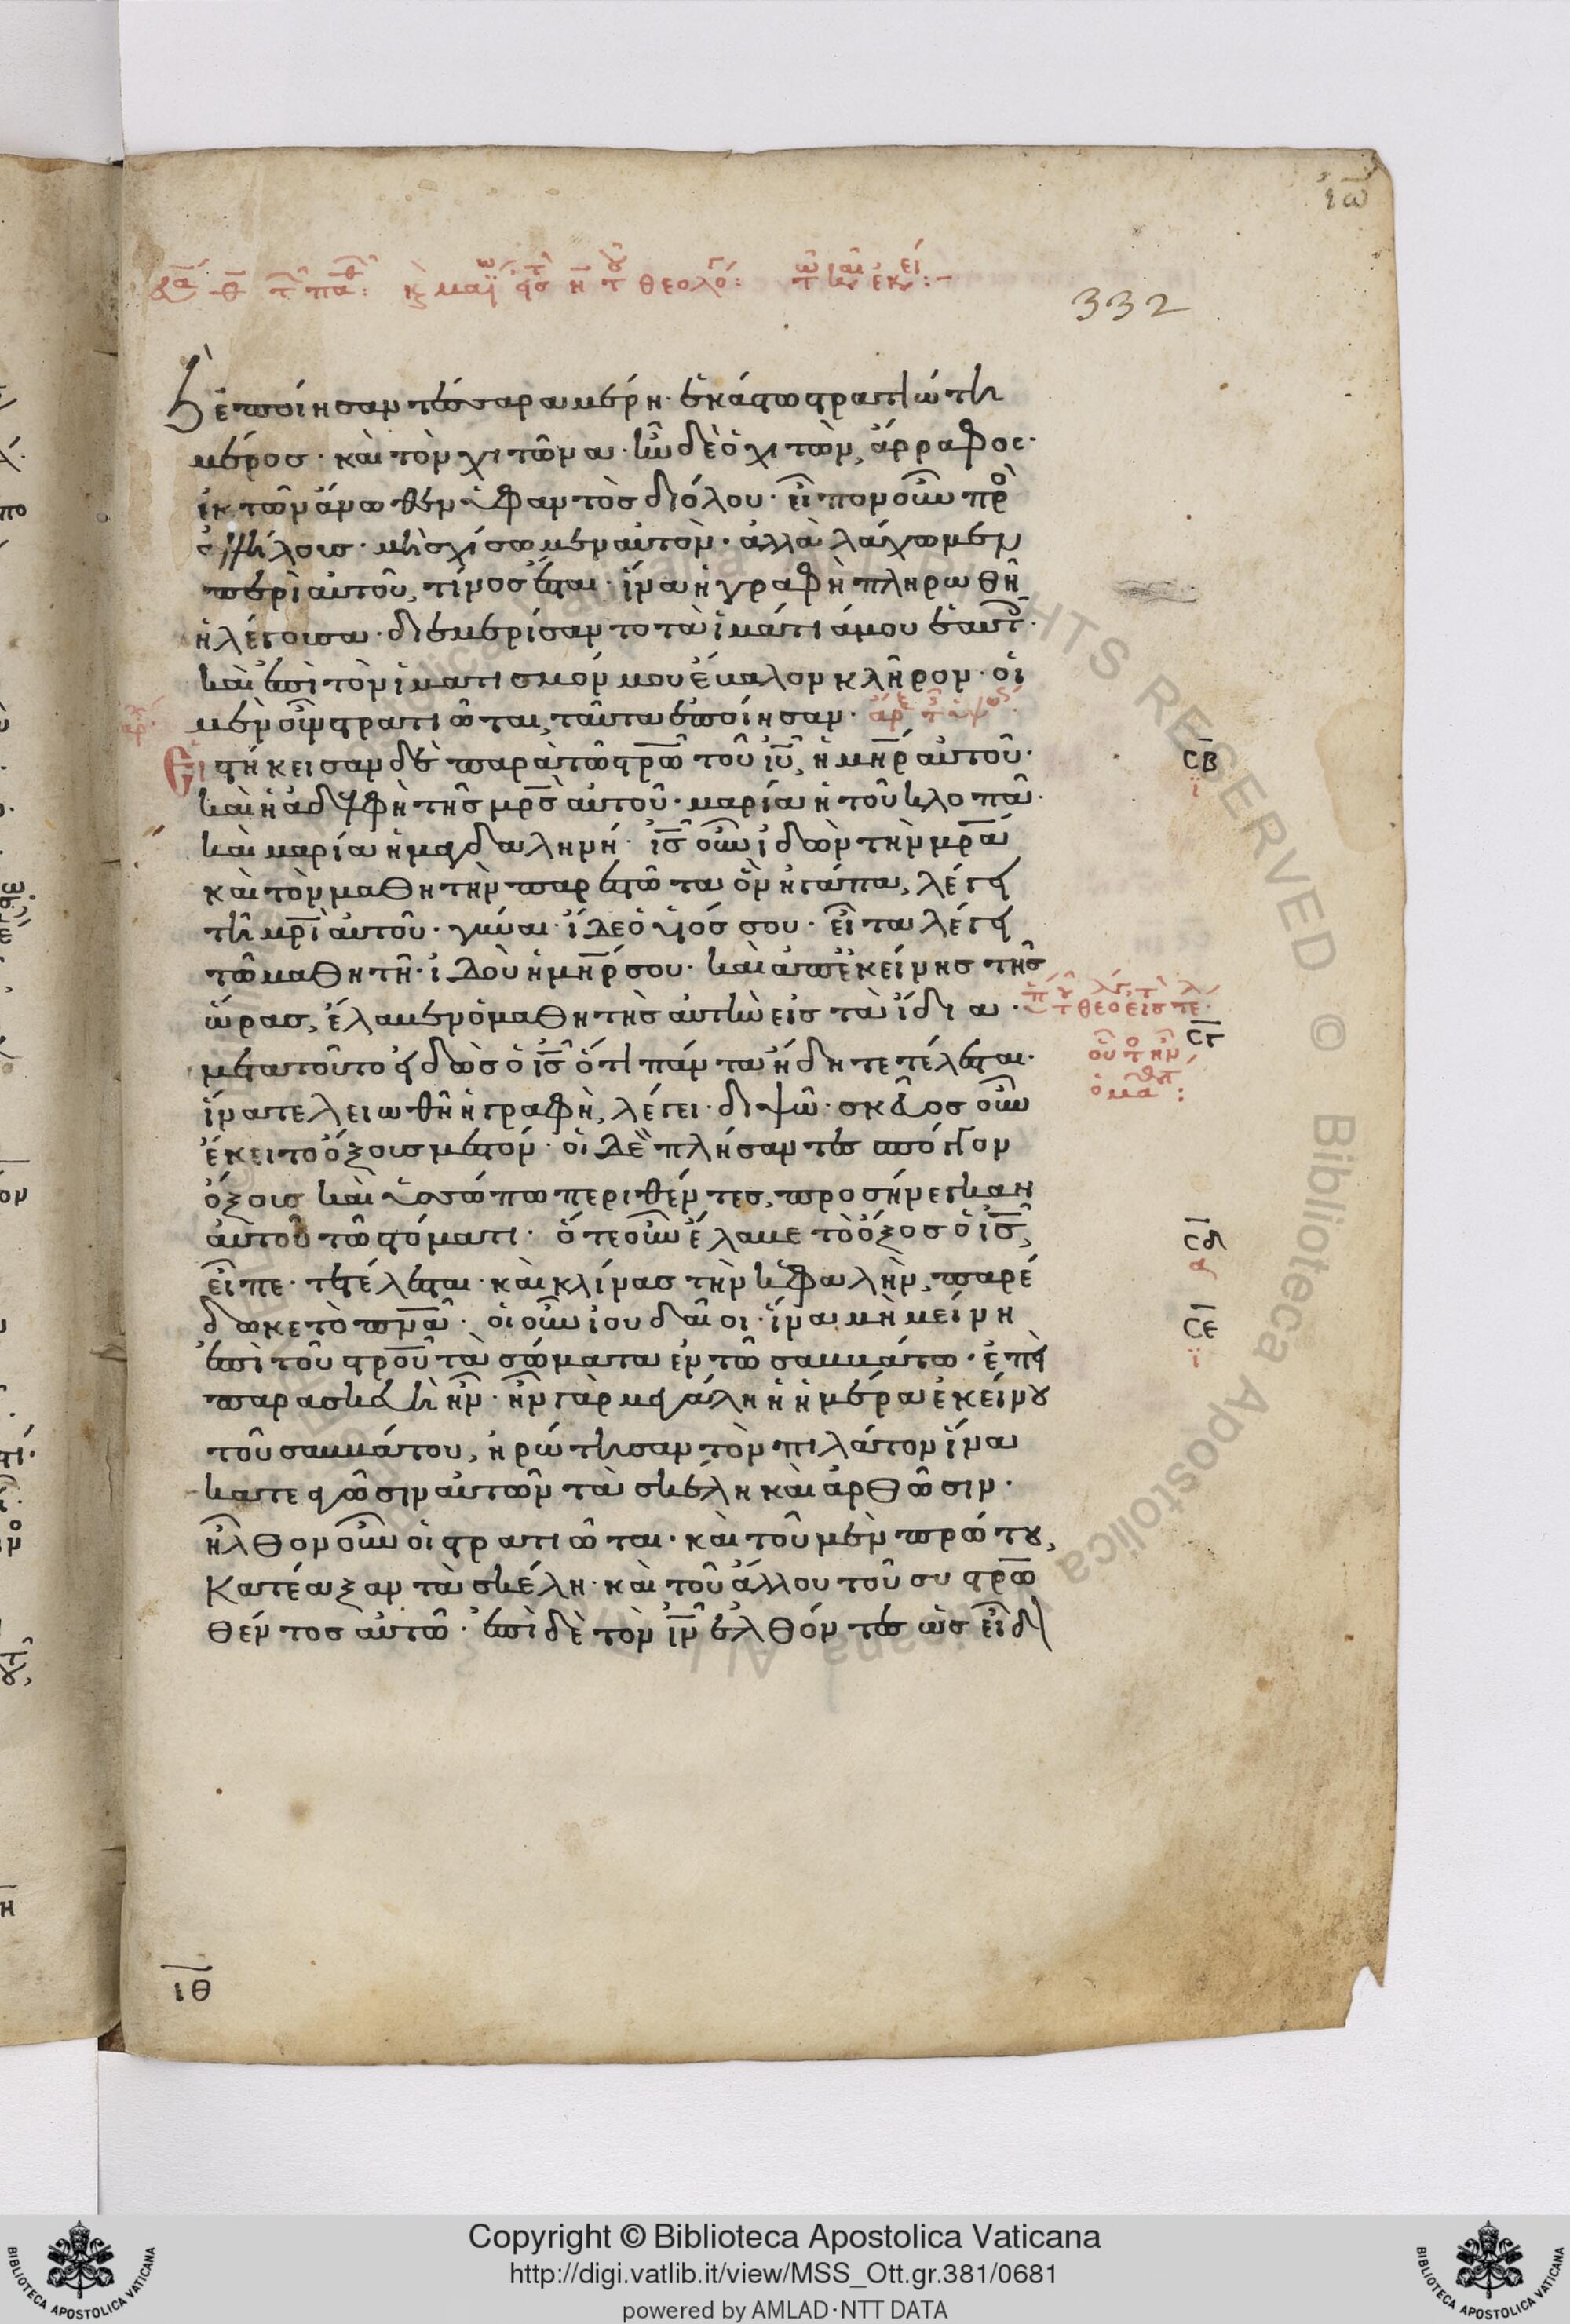 ἰω̅
332
ἐποίησαν τέσσαρα μέρη· ἑκάστω στρατιώτη
μέρος· καὶ τὸν χιτῶνα· ἦν δὲ ὁ χιτὼν, ἄρραφος·
ἐκ τῶν ἄνωθεν ὑφαντὸς διόλου· εἶπον οὖν πρὸ
ἀλλήλους· μὴ σχίσωμεν αὐτὸν· ἀλλὰ λάχωμεν
περὶ αὐτοῦ, τίνος ἔσται· ἵνα ἡ γραφὴ πληρωθῆ
ἡ λέγουσα· διεμερίσαντο τὰ ἱμάτιά μου ἑαυτ·
καὶ ἐπὶ τὸν ἱματισμόν μου ἔβαλον κλῆρον· οἱ
μὲν οὖν στρατιῶται, ταῦτα ἐποίησαν·
Εἱστήκεισαν δὲ παρὰ τῶ στρ̅ω τοῦ ἰυ̅, ἡ μη̅ρ αὐτοῦ·
καὶ ἡ ἀδελφὴ τῆς μρ̅ς αὐτοῦ· μαρία ἡ τοῦ κλοπᾶ·
καὶ μαρία ἡ μαγδαληνή· ἰς̅ οὖν ἰδὼν τὴν μρ̅α
καὶ τὸν μαθητὴν παρεστῶτα ὃν ἠγάπα, λέγει
τῆ μρ̅ι αὐτοῦ· γύναι· ἴδε ὁ υἱός σου· εἶτα λέγει
τῶ μαθητῆ· ἰδοὺ ἡ μη̅ρ σου· καὶ ἀπ' ἐκείνης τῆς
ὥρας, ἔλαβεν ὁ μαθητὴς αὐτὴν εἰς τὰ ἴδια·
μετὰ τοῦτο εἰδὼς ὁ ἰς̅ ὅτι πάντα ἤδη τετέλεσται·
ἵνα τελειωθῆ ἡ γραφὴ, λέγει· διψῶ· σκεῦος οὖν
ἔκειτο ὄξους μεστόν· οἱ δὲ πλήσαντες σπόγγον
ὄξους καὶ ὑσσώπω περιθέντες, προσήνεγκαν
αὐτοῦ τῶ στόματι· ὅτε οὖν ἔλαβε τὸ ὄξος ὁ ἰς̅,
εἶπε· τετέλεσται· καὶ κλίνας τὴν κεφαλὴν, παρέ
δωκε τὸ πν̅α· οἱ οὖν ἰουδαῖοι· ἵνα μὴ μείνη
ἐπὶ τοῦ στρ̅ου τὰ σώματα ἐν τῶ σαββάτω· ἐπεὶ
παρασκευὴ ἦν· ἦν γὰρ μεγάλη ἡ ἡμέρα ἐκείνου
τοῦ σαββάτου, ἠρώτησαν τὸν πιλάτον ἵνα
κατεαγῶσιν αὐτῶν τὰ σκέλη καὶ ἀρθῶσιν·
ἦλθον οὖν οἱ στρατιῶται· καὶ τοῦ μὲν πρώτου,
Κατέαξαν τὰ σκέλη· καὶ τοῦ ἄλλου τοῦ συστρ̅ω
θέντος αὐτῶ· ἐπὶ δὲ τὸν ἰν̅ ἐλθόντες ὡς εἶδ
σβ
ϊ
στ
σδ
α
σε
ϊ
ιθ
Copyright © Biblioteca Apostolica Vaticana
http://digi.vatlib.it/view/MSS_Ott.gr.381/0681
powered by AMLAD·NTT DATA